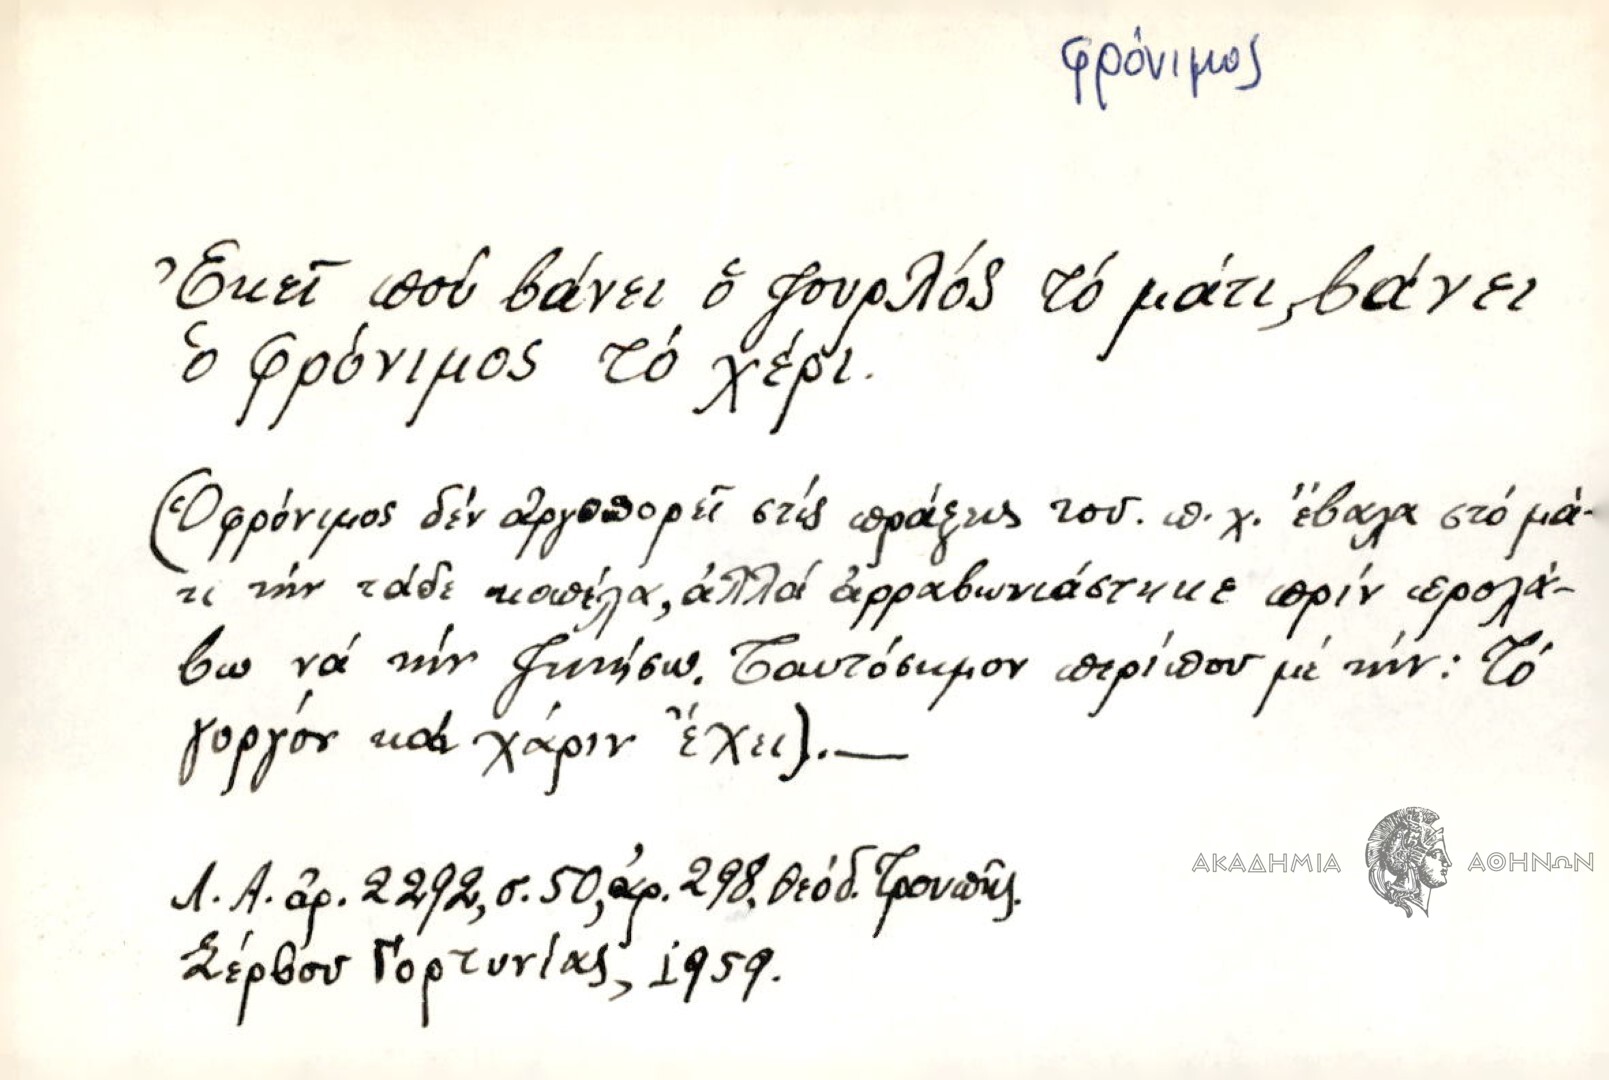 φρόνιμος
Ἐκεῖ πού βάνει ὁ ζουρλός τό μάτι, βάνει
ὁ φρόνιμος τό χέρι.
(Ὁ φρόνιμος δέν ἀργοπορεῖ στίς πράξεις του. π.χ. ἔβαλα στό μά-
τι τήν τάδε κοπέλα, ἀλλά ἀρραβωνιάστηκε πρίν προλά-
βω νά τήν ζητήσω. Ταυτόσημον περίπου μέ τήν: Τό
γοργόν καί χάριν ἔχει).—
Λ. Α. ἀρ. 2292, σ. 50, ἀρ. 298, Θεόδ. Τρουπῆς.
Σέρβου Γορτυνίας, 1959.
ΑΚΑΔΗΜΙΑ ΑΘΗΝΩΝ